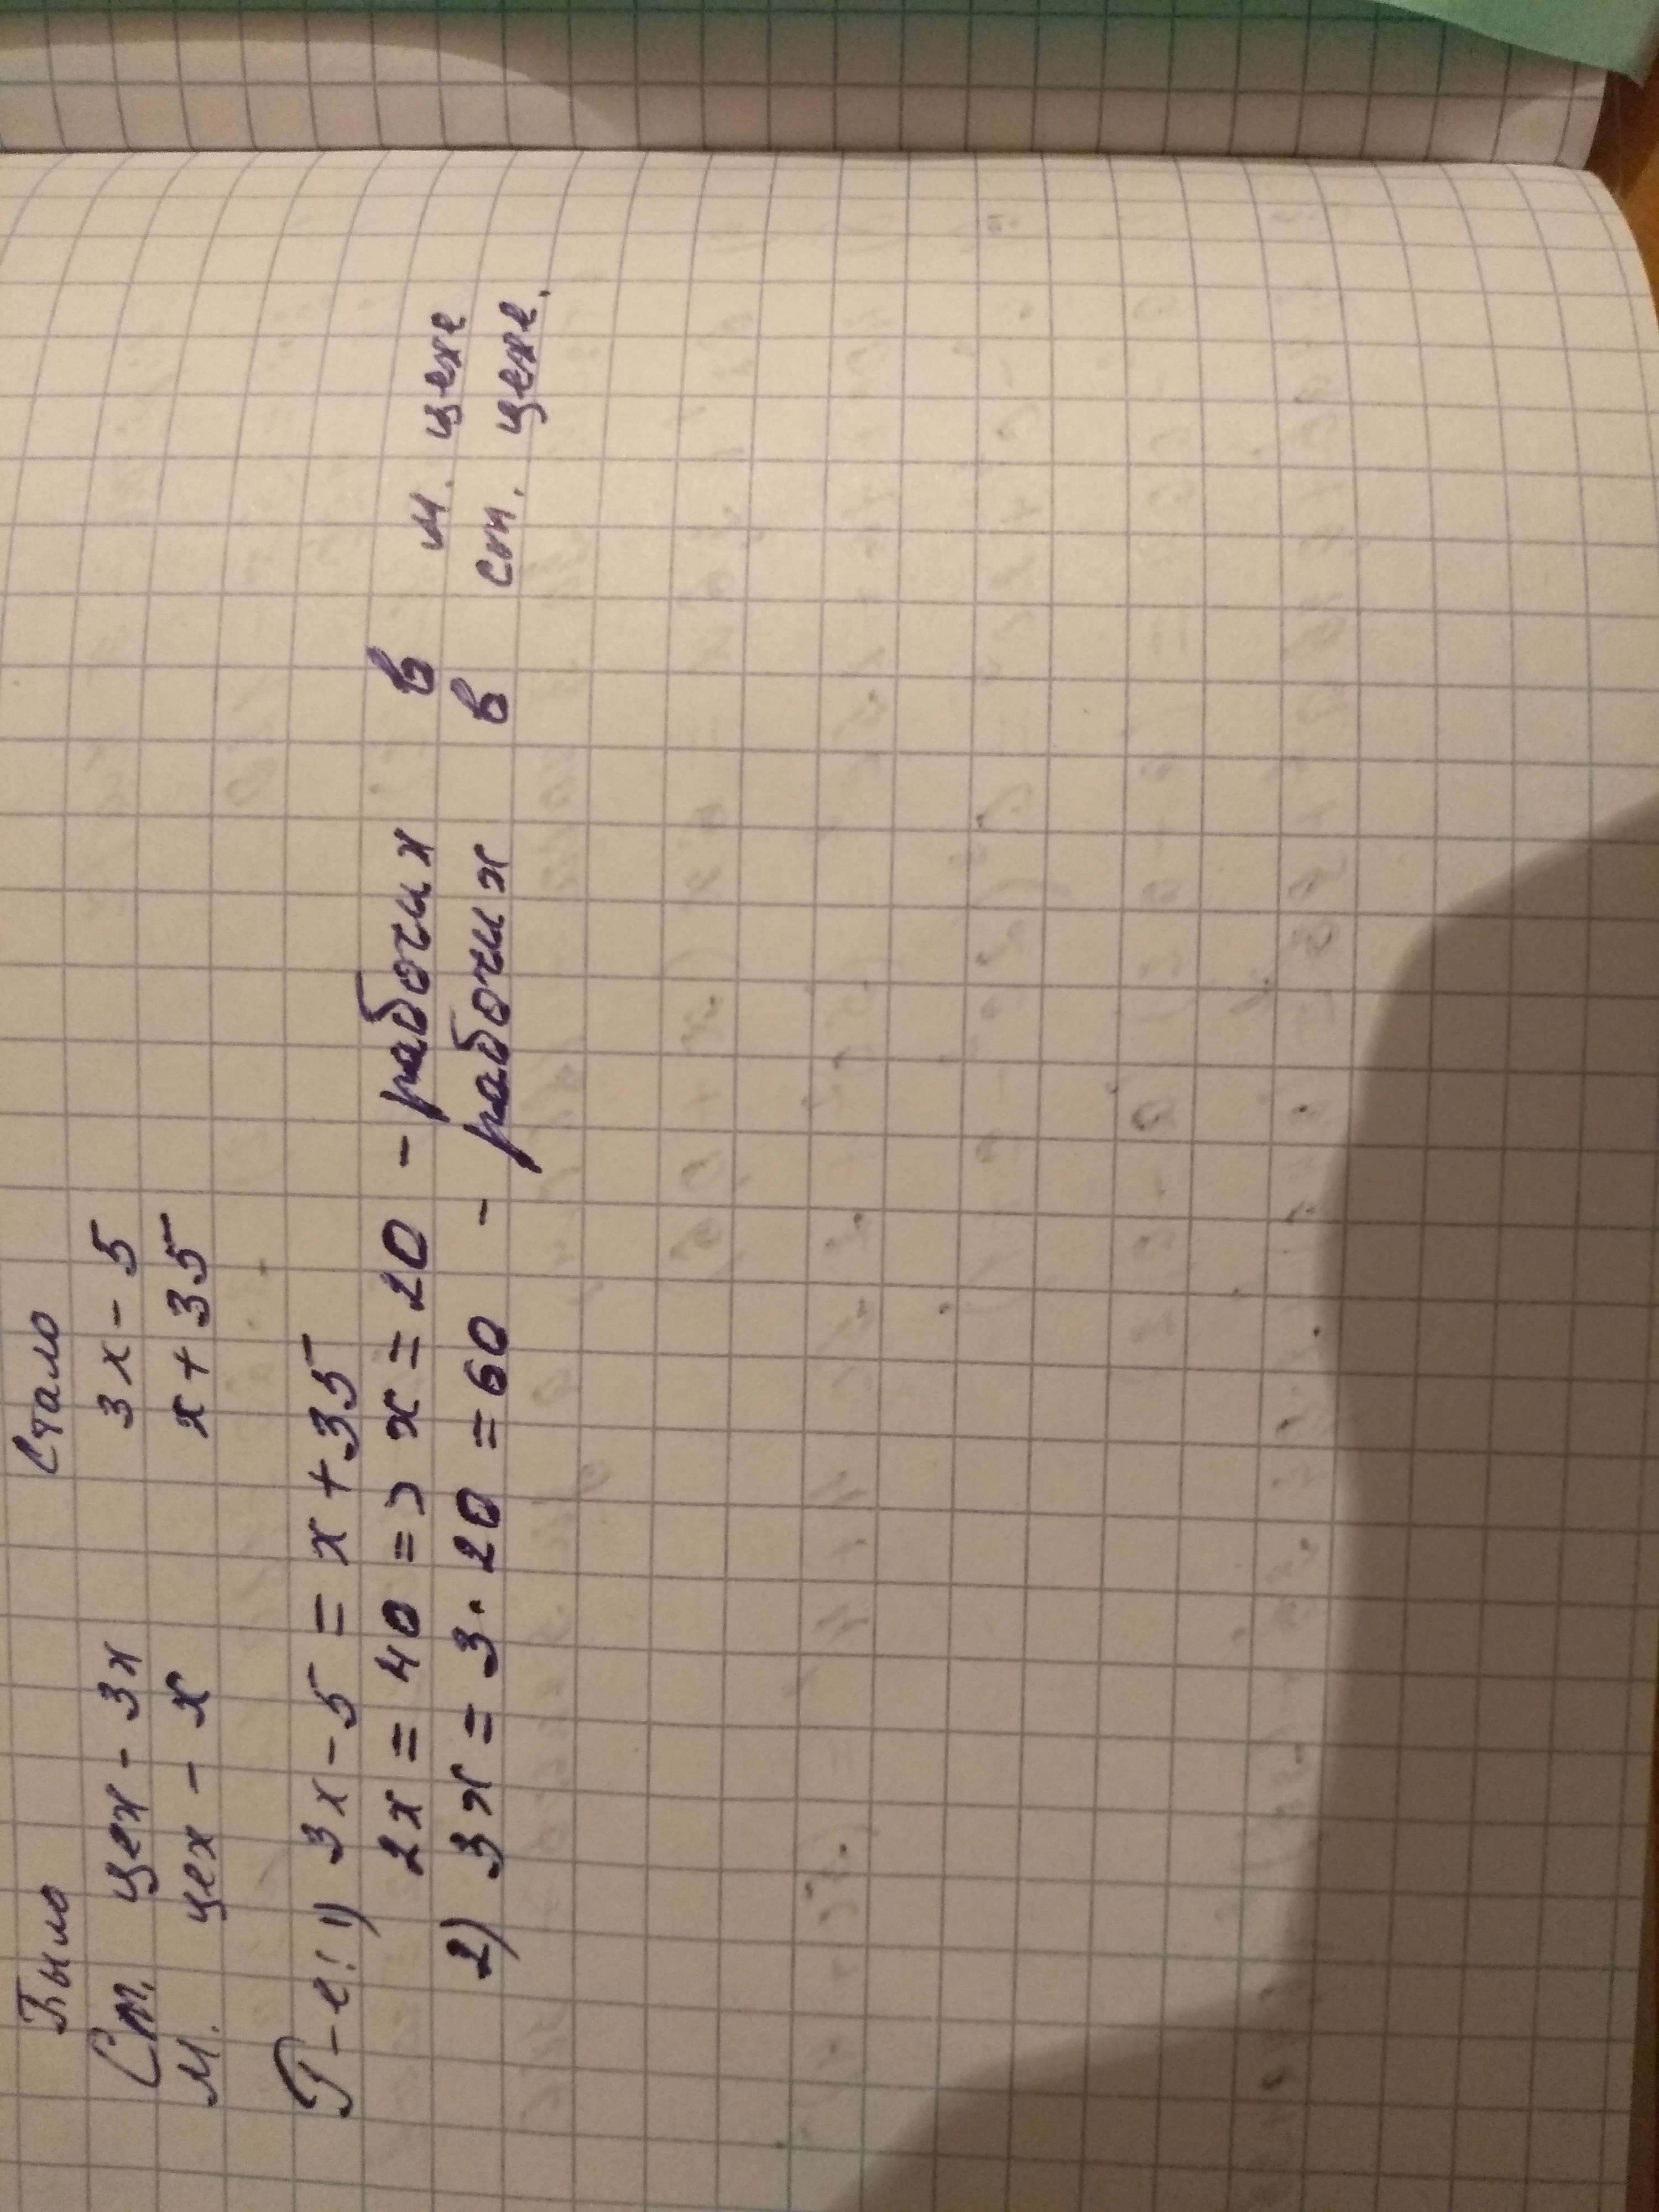 Было Стало
Ст. цех - 3х 3х - 5
М. цех - х х + 35
Р-е: 1) 3х - 5 = х + 35
2х = 40 => х = 20 - рабочих в м. цехе
2) 3х = 3 · 20 = 60 - рабочих в ст. цехе.